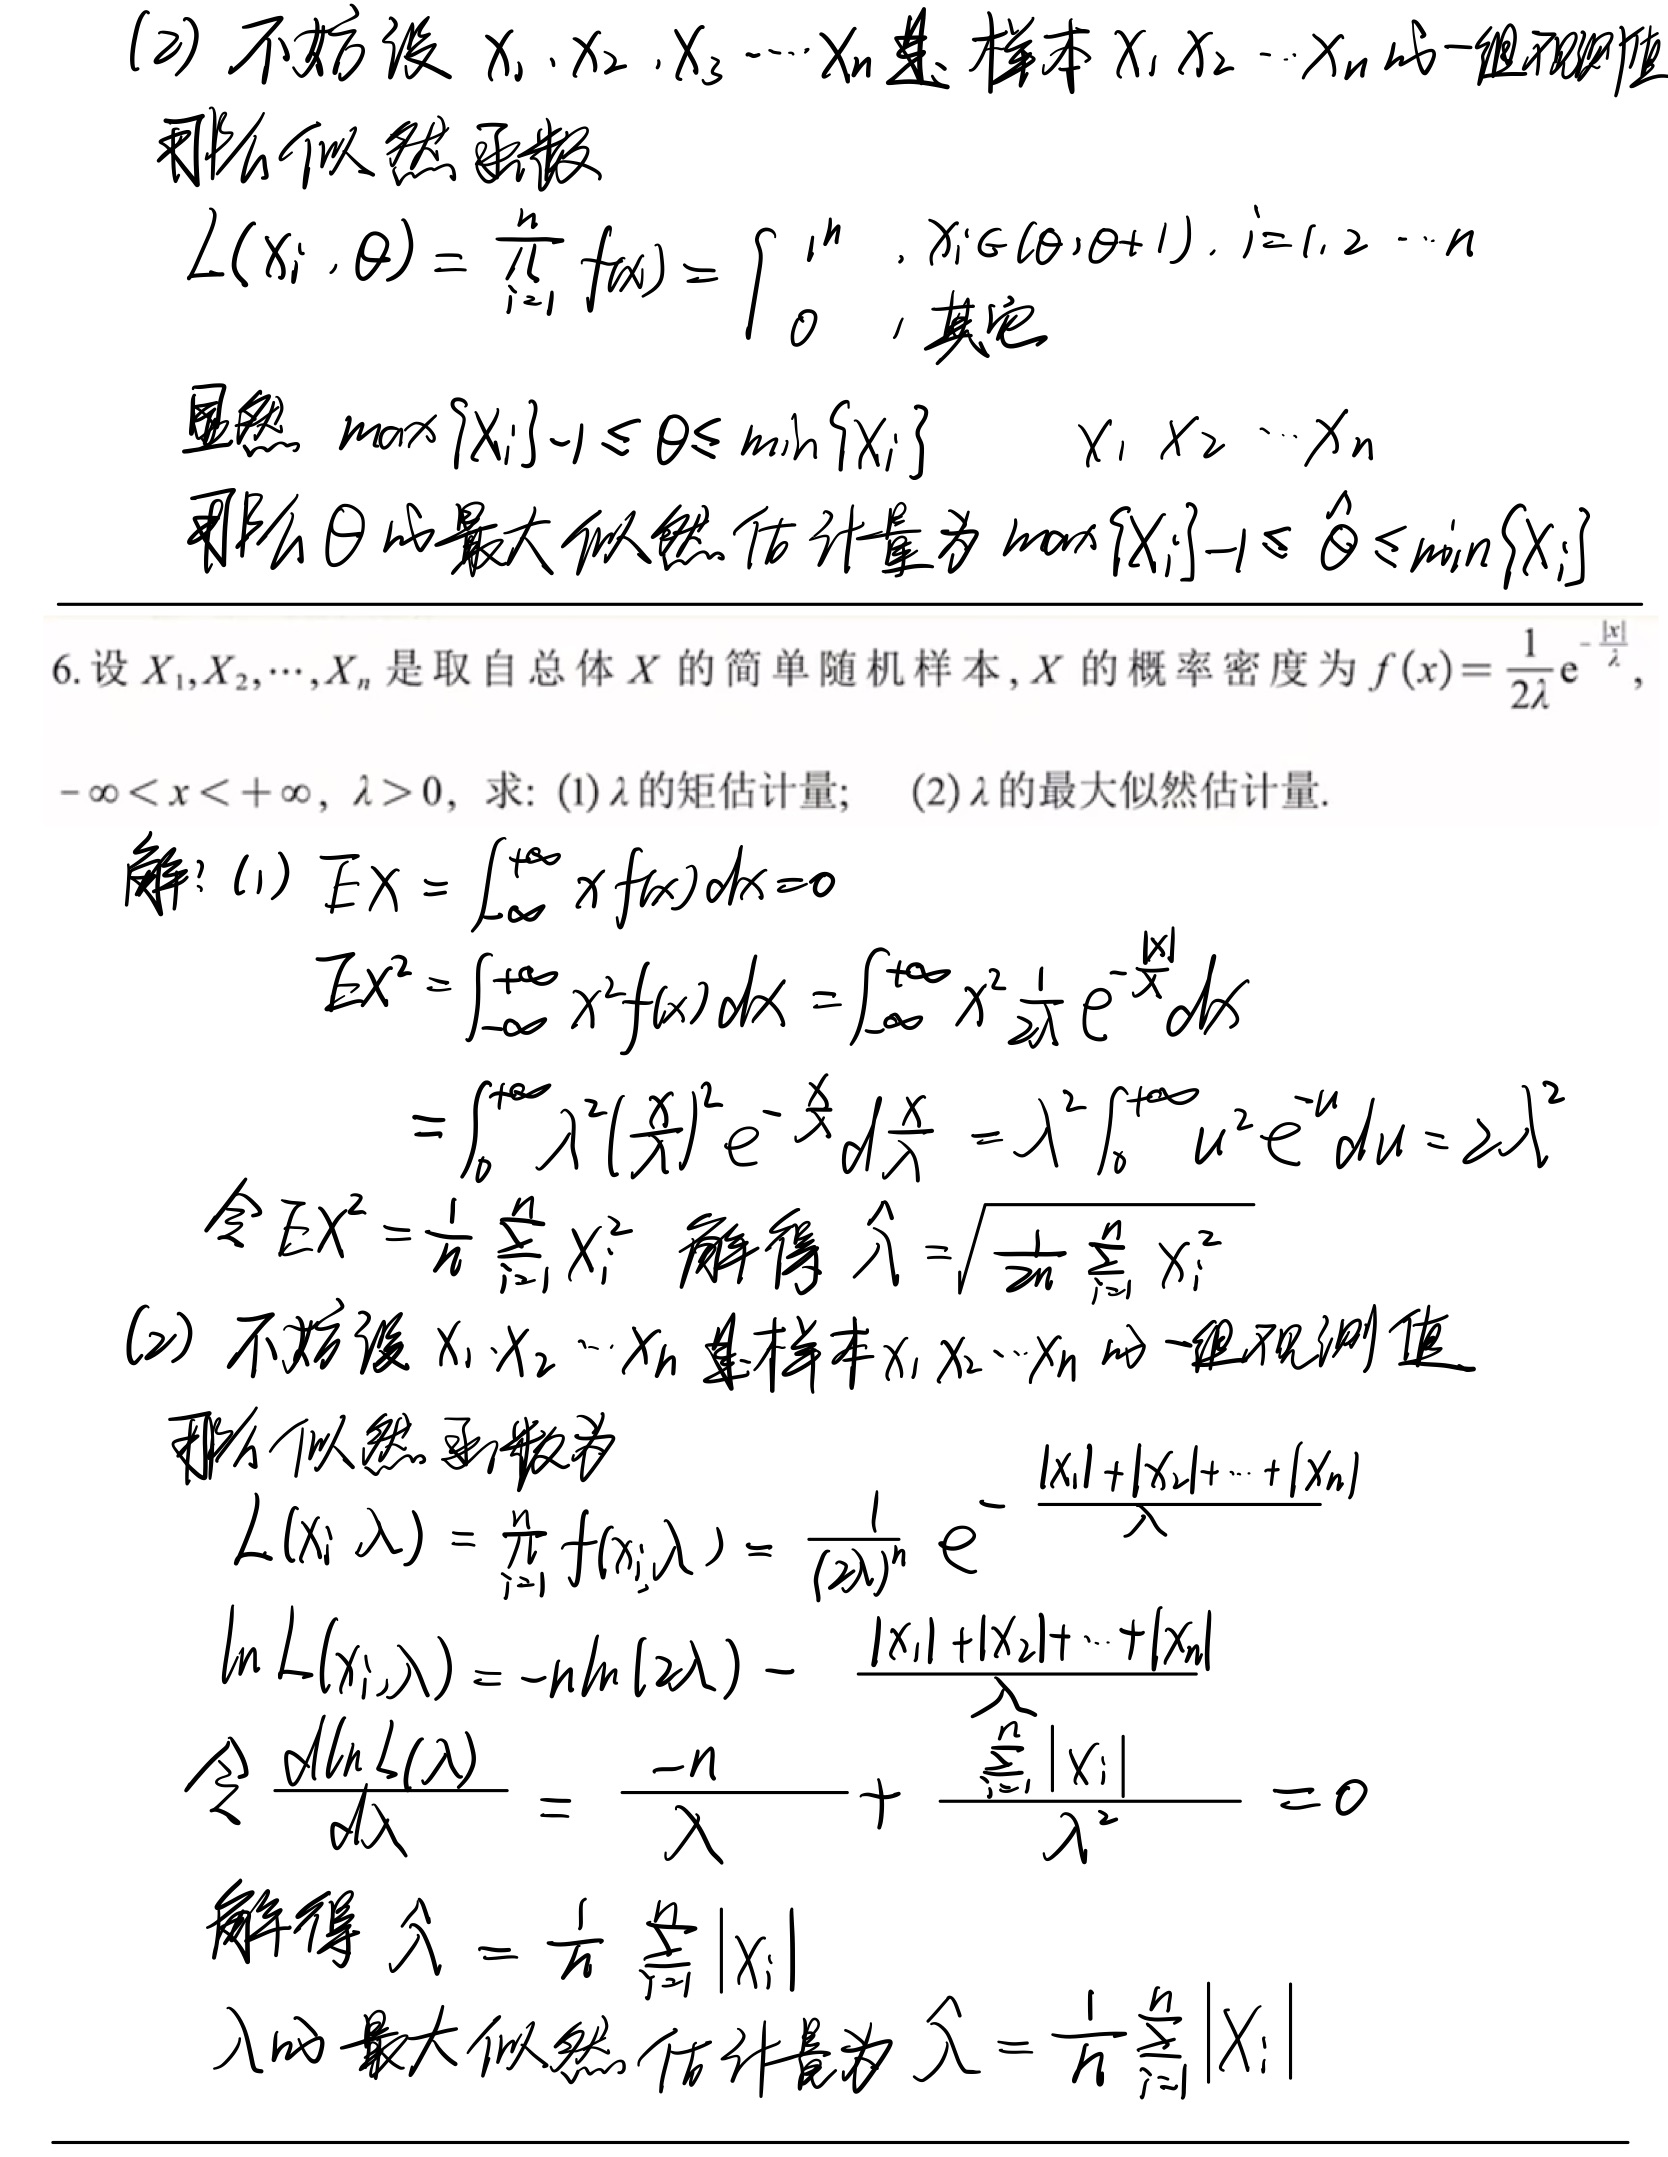 (2) 不妨设 x₁、x₂、x₃ … xₙ 是样本 X₁ X₂ … Xₙ 的一组观测值
那么似然函数
L(xᵢ, θ) = ∏ᵢ₌₁ⁿ f(x) = { 1ⁿ , xᵢ∈(θ, θ+1), i=1, 2 … n
0 , 其它
显然 max{Xᵢ}-1 ≤ θ ≤ min{Xᵢ} X₁ X₂ … Xₙ
那么θ的最大似然估计量为 max{Xᵢ}-1 ≤ θ̂ ≤ min{Xᵢ}
6. 设 X₁,X₂,…,Xₙ 是取自总体 X 的简单随机样本, X 的概率密度为 f(x) = 1/(2λ) e^(-|x|/λ),
-∞<x<+∞, λ>0, 求: (1) λ的矩估计量; (2) λ的最大似然估计量.
解: (1) EX = ∫₋∞^(+∞) x f(x) dx = 0
EX² = ∫₋∞^(+∞) x² f(x) dx = ∫₋∞^(+∞) x² 1/(2λ) e^(-|x|/λ) dx
= ∫₀^(+∞) λ² (x/λ)² e^(-x/λ) d(x/λ) = λ² ∫₀^(+∞) u² e^(-u) du = 2λ²
令 EX² = 1/n ∑ᵢ₌₁ⁿ Xᵢ² 解得 λ̂ = √(1/(2n) ∑ᵢ₌₁ⁿ Xᵢ²)
(2) 不妨设 x₁、x₂ … xₙ 是样本 X₁ X₂ … Xₙ 的一组观测值
那么似然函数为
L(xᵢ λ) = ∏ᵢ₌₁ⁿ f(xᵢ, λ) = 1/(2λ)ⁿ e^(-(|x₁|+|x₂|+…+|xₙ|)/λ)
ln L(xᵢ, λ) = -n ln(2λ) - (|x₁|+|x₂|+…+|xₙ|)/λ
令 d ln L(λ)/dλ = -n/λ + ∑ᵢ₌₁ⁿ |xᵢ|/λ² = 0
解得 λ̂ = 1/n ∑ᵢ₌₁ⁿ |xᵢ|
λ的最大似然估计量为 λ̂ = 1/n ∑ᵢ₌₁ⁿ |Xᵢ|